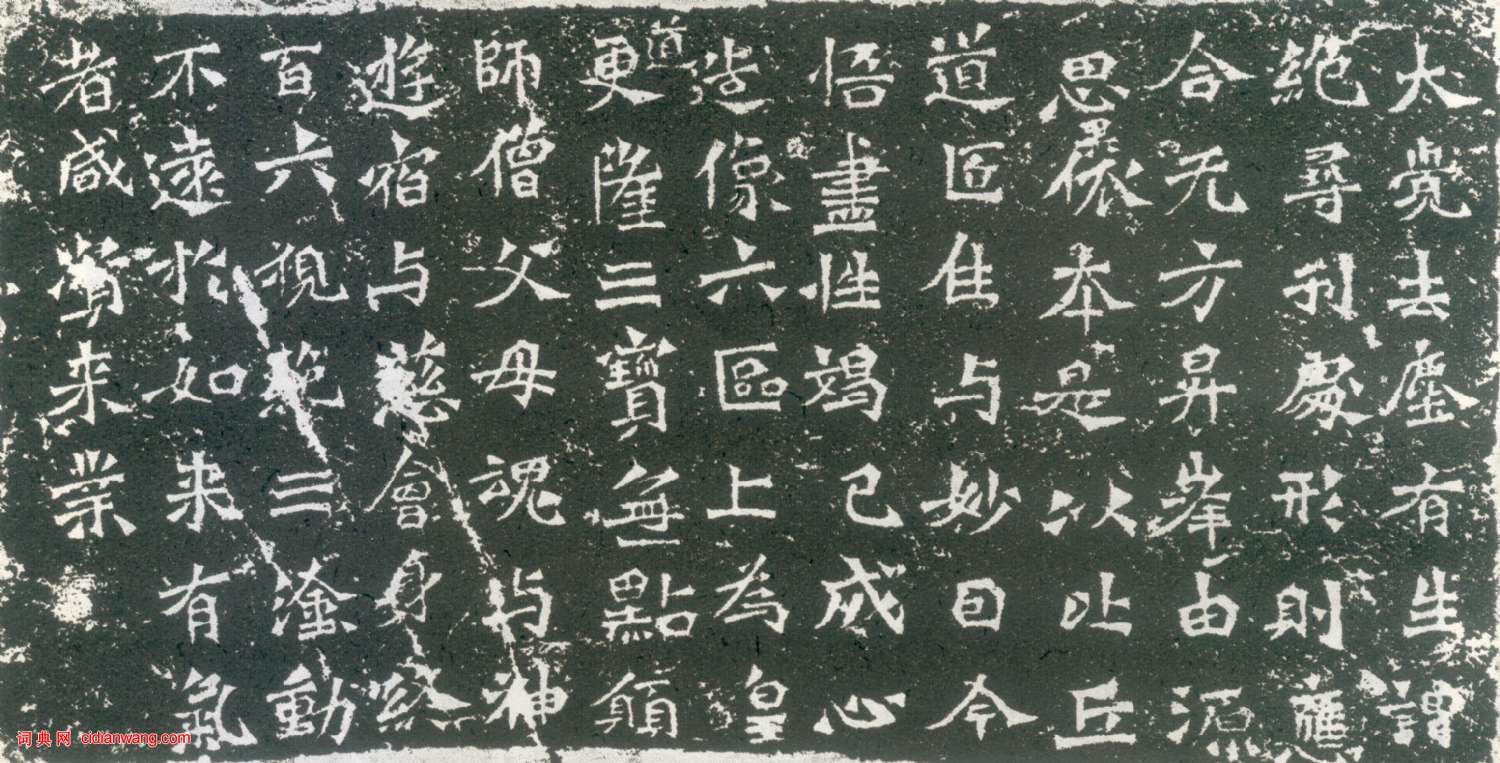 太覺去塵有生謂
絕尋刋處形則應
合无方昇峯由源
思扆本是以比丘
道匠住与妙因今
悟盡性竭己成心
造像六區上為皇
道更隆三寶無點願
師僧父母魂与神
遊宿与慈會身終
百六視絕三塗動
不遠於如来有氣
者咸資来業
词典网 cidianwang.com